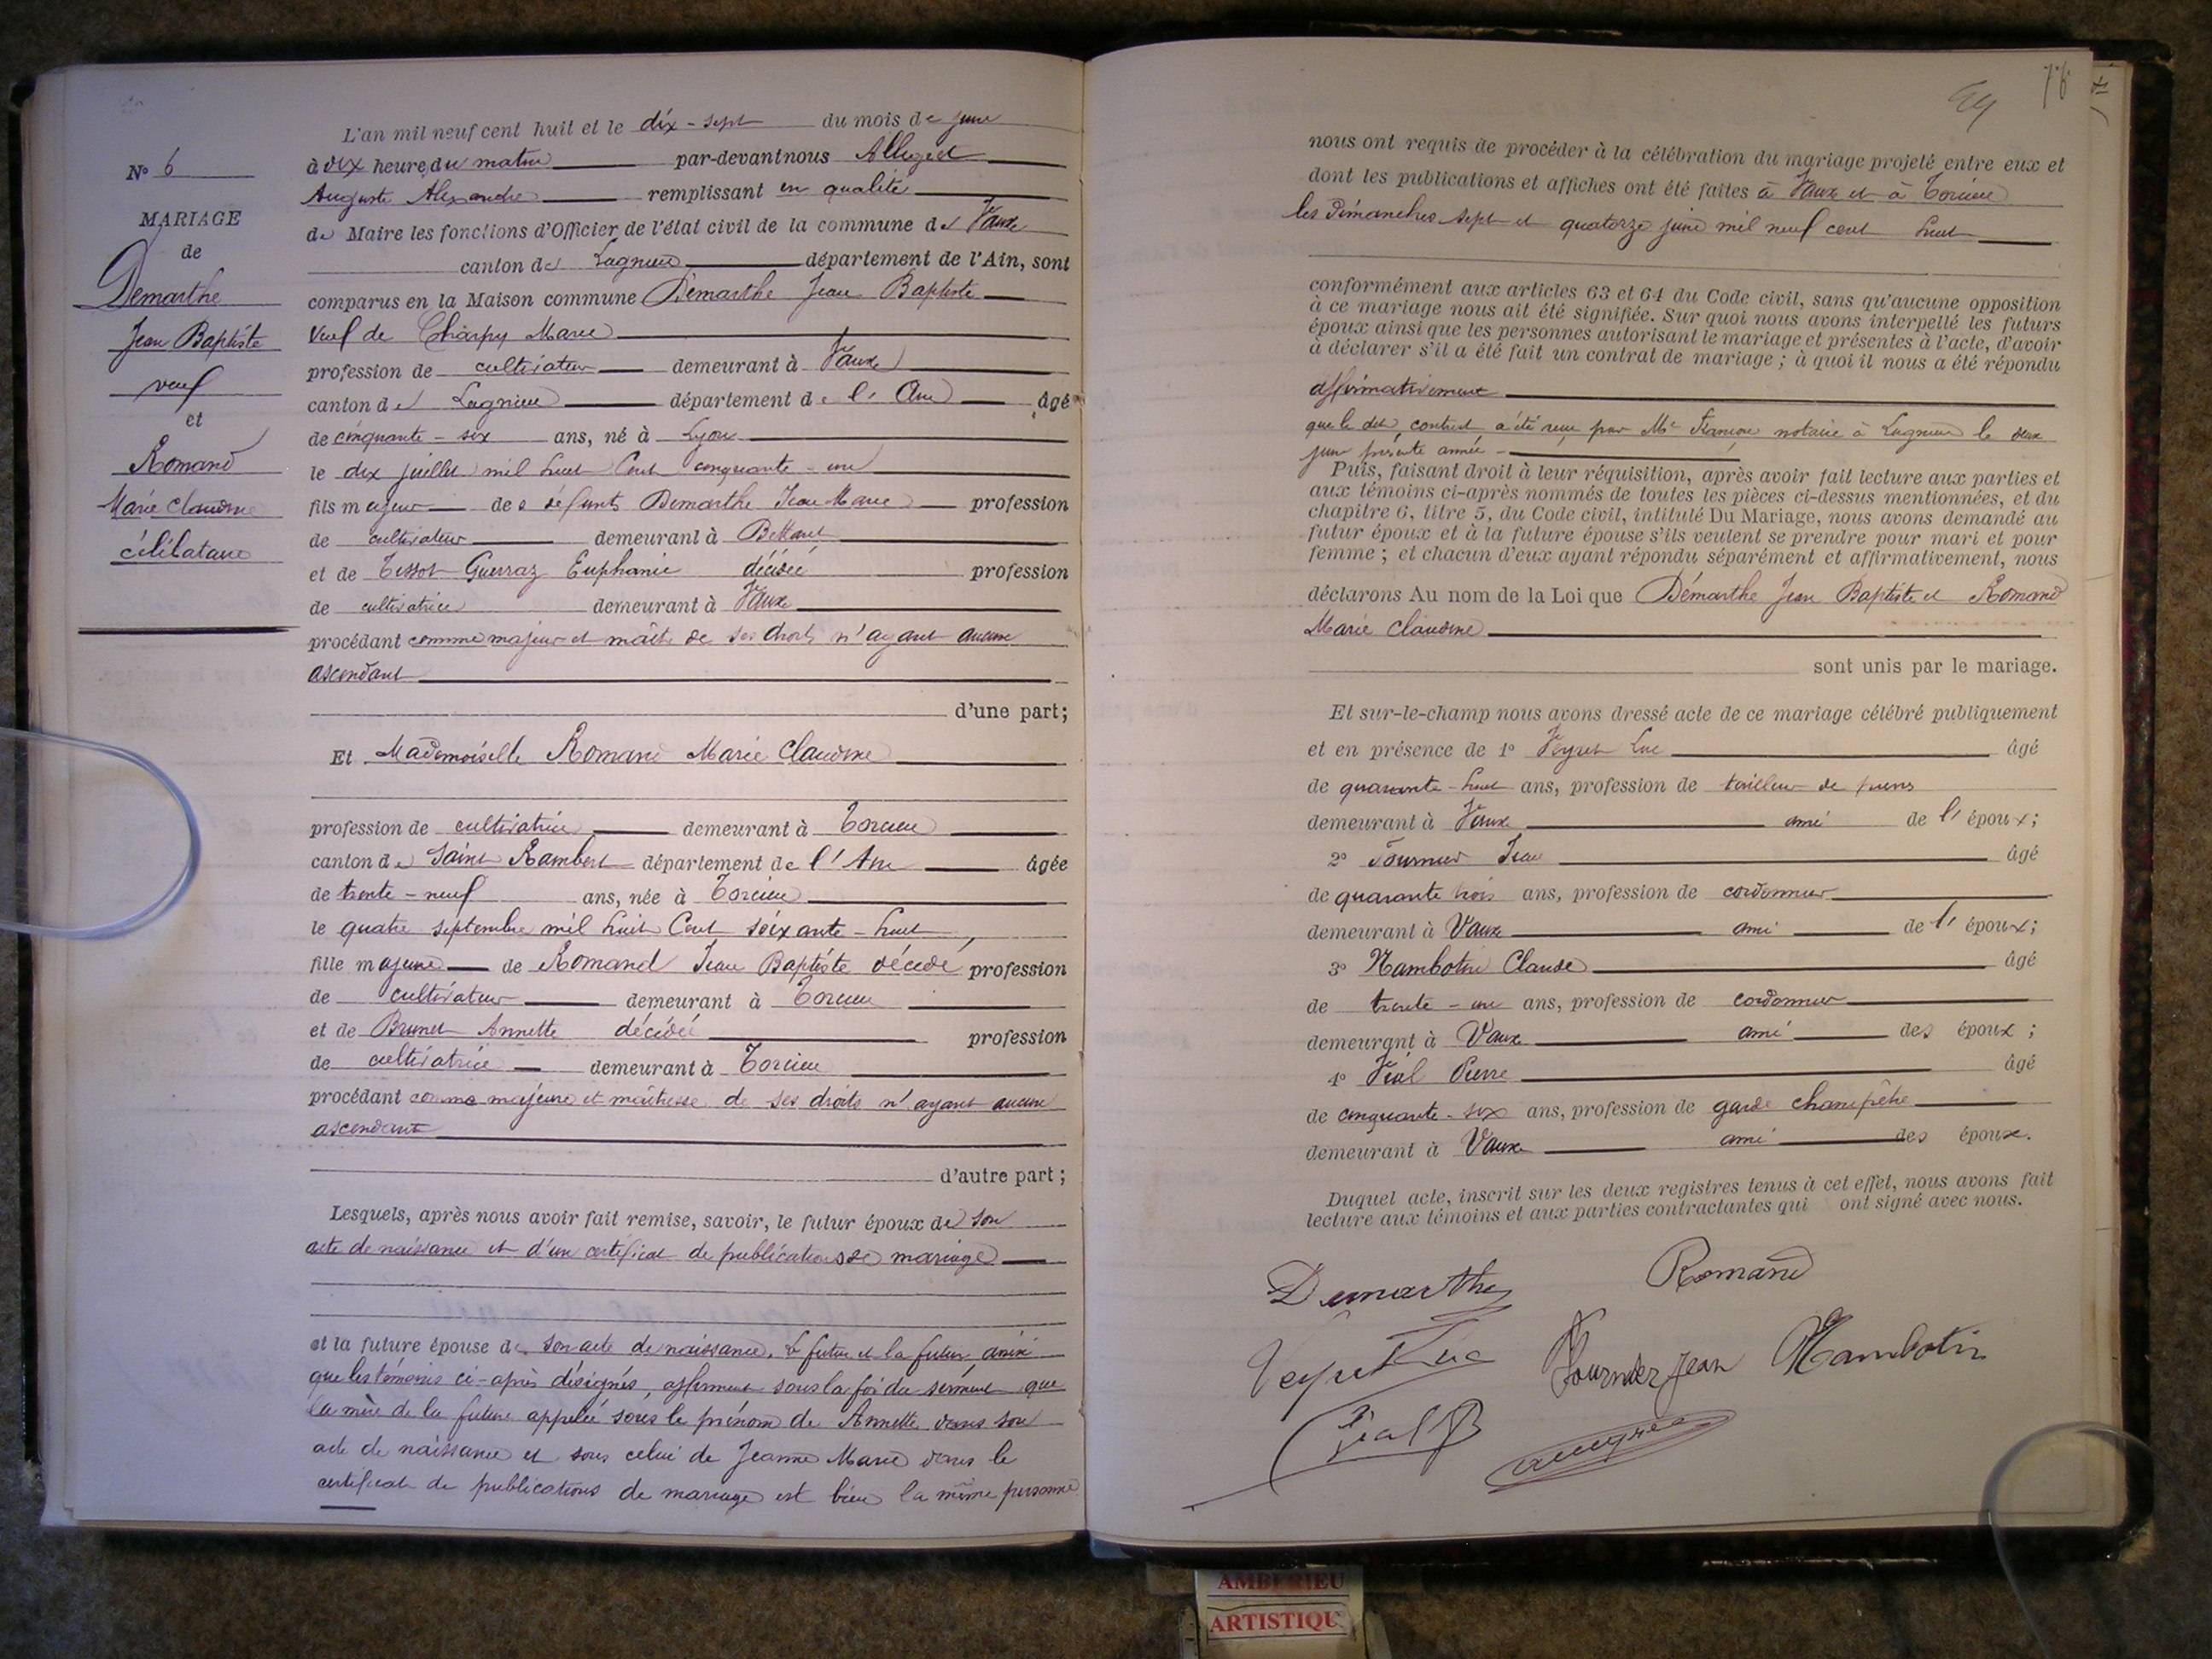 N° 6
MARIAGE
de
Demarthe
Jean Baptiste
veuf
et
Romand
Marie Claudine
célibataire
L'an mil neuf cent huit et le dix-sept du mois de juin
à dix heure du matin par-devant nous
Auguste Alexandre remplissant en qualité
de Maire les fonctions d'Officier de l'état civil de la commune de Vaux
canton de Lagnieu département de l'Ain, sont
comparus en la Maison commune Démarthe Jean Baptiste
Veuf de Charpy Marie
profession de cultivateur demeurant à Vaux
canton de Lagnieu département de l'Ain âgé
de cinquante-six ans, né à Lyon
le dix juillet mil huit Cent cinquante-un
fils majeur des défunts Demarthe Jean-Marie profession
de cultivateur demeurant à Bettant
et de Tissot Guerraz Euphanie décédée profession
de cultivatrice demeurant à Vaux
procédant comme majeur et maître de ses droits n'ayant aucun
ascendant
d'une part;
Et Mademoiselle Romand Marie Claudine
profession de cultivatrice demeurant à Torcieu
canton de Saint Rambert département de l'Ain âgée
de trente-neuf ans, née à Torcieu
le quatre septembre mil huit Cent soixante-huit
fille majeure de Romand Jean Baptiste décédé profession
de cultivateur demeurant à Torcieu
et de Brunet Annette décédée profession
de cultivatrice demeurant à Torcieu
procédant comme majeure et maîtresse de ses droits n'ayant aucun
ascendant
d'autre part;
Lesquels, après nous avoir fait remise, savoir, le futur époux de son
acte de naissance et d'un certificat de publications de mariage
et la future épouse de son acte de naissance. Le futur et la future ainsi
que les témoins ci-après désignés, affirment sous la foi du serment que
la mère de la future appelée sous le prénom de Annette dans son
acte de naissance et sous celui de Jeanne Marie dans le
certificat de publications de mariage est bien la même personne
76
nous ont requis de procéder à la célébration du mariage projeté entre eux et
dont les publications et affiches ont été faites à Vaux et à Torcieu
les Dimanches sept et quatorze juin mil neuf cent huit
conformément aux articles 63 et 64 du Code civil, sans qu'aucune opposition
à ce mariage nous ait été signifiée. Sur quoi nous avons interpellé les futurs
époux ainsi que les personnes autorisant le mariage et présentes à l'acte, d'avoir
à déclarer s'il a été fait un contrat de mariage ; à quoi il nous a été répondu
affirmativement
que le dit contrat a été reçu par Me notaire à Lagnieu le deux
juin présente année
Puis, faisant droit à leur réquisition, après avoir fait lecture aux parties et
aux témoins ci-après nommés de toutes les pièces ci-dessus mentionnées, et du
chapitre 6, titre 5, du Code civil, intitulé Du Mariage, nous avons demandé au
futur époux et à la future épouse s'ils veulent se prendre pour mari et pour
femme ; et chacun d'eux ayant répondu séparément et affirmativement, nous
déclarons Au nom de la Loi que Démarthe Jean Baptiste et Romand
Marie Claudine
sont unis par le mariage.
Et sur-le-champ nous avons dressé acte de ce mariage célébré publiquement
et en présence de 1° Veyret Luc âgé
de quarante-huit ans, profession de tailleur de pierres
demeurant à Vaux ami de l'époux;
2° Fournier Jean âgé
de quarante trois ans, profession de cordonnier
demeurant à Vaux ami de l'époux;
3° Nambotin Claude âgé
de trente-un ans, profession de cordonnier
demeurant à Vaux ami des époux ;
4° Vial Pierre âgé
de cinquante-six ans, profession de garde champêtre
demeurant à Vaux ami des époux.
Duquel acte, inscrit sur les deux registres tenus à cet effet, nous avons fait
lecture aux témoins et aux parties contractantes qui ont signé avec nous.
Demarthe Romand
Veyret Luc Fournier Jean Nambotin
Vial P
AMBERIEU
ARTISTIQU